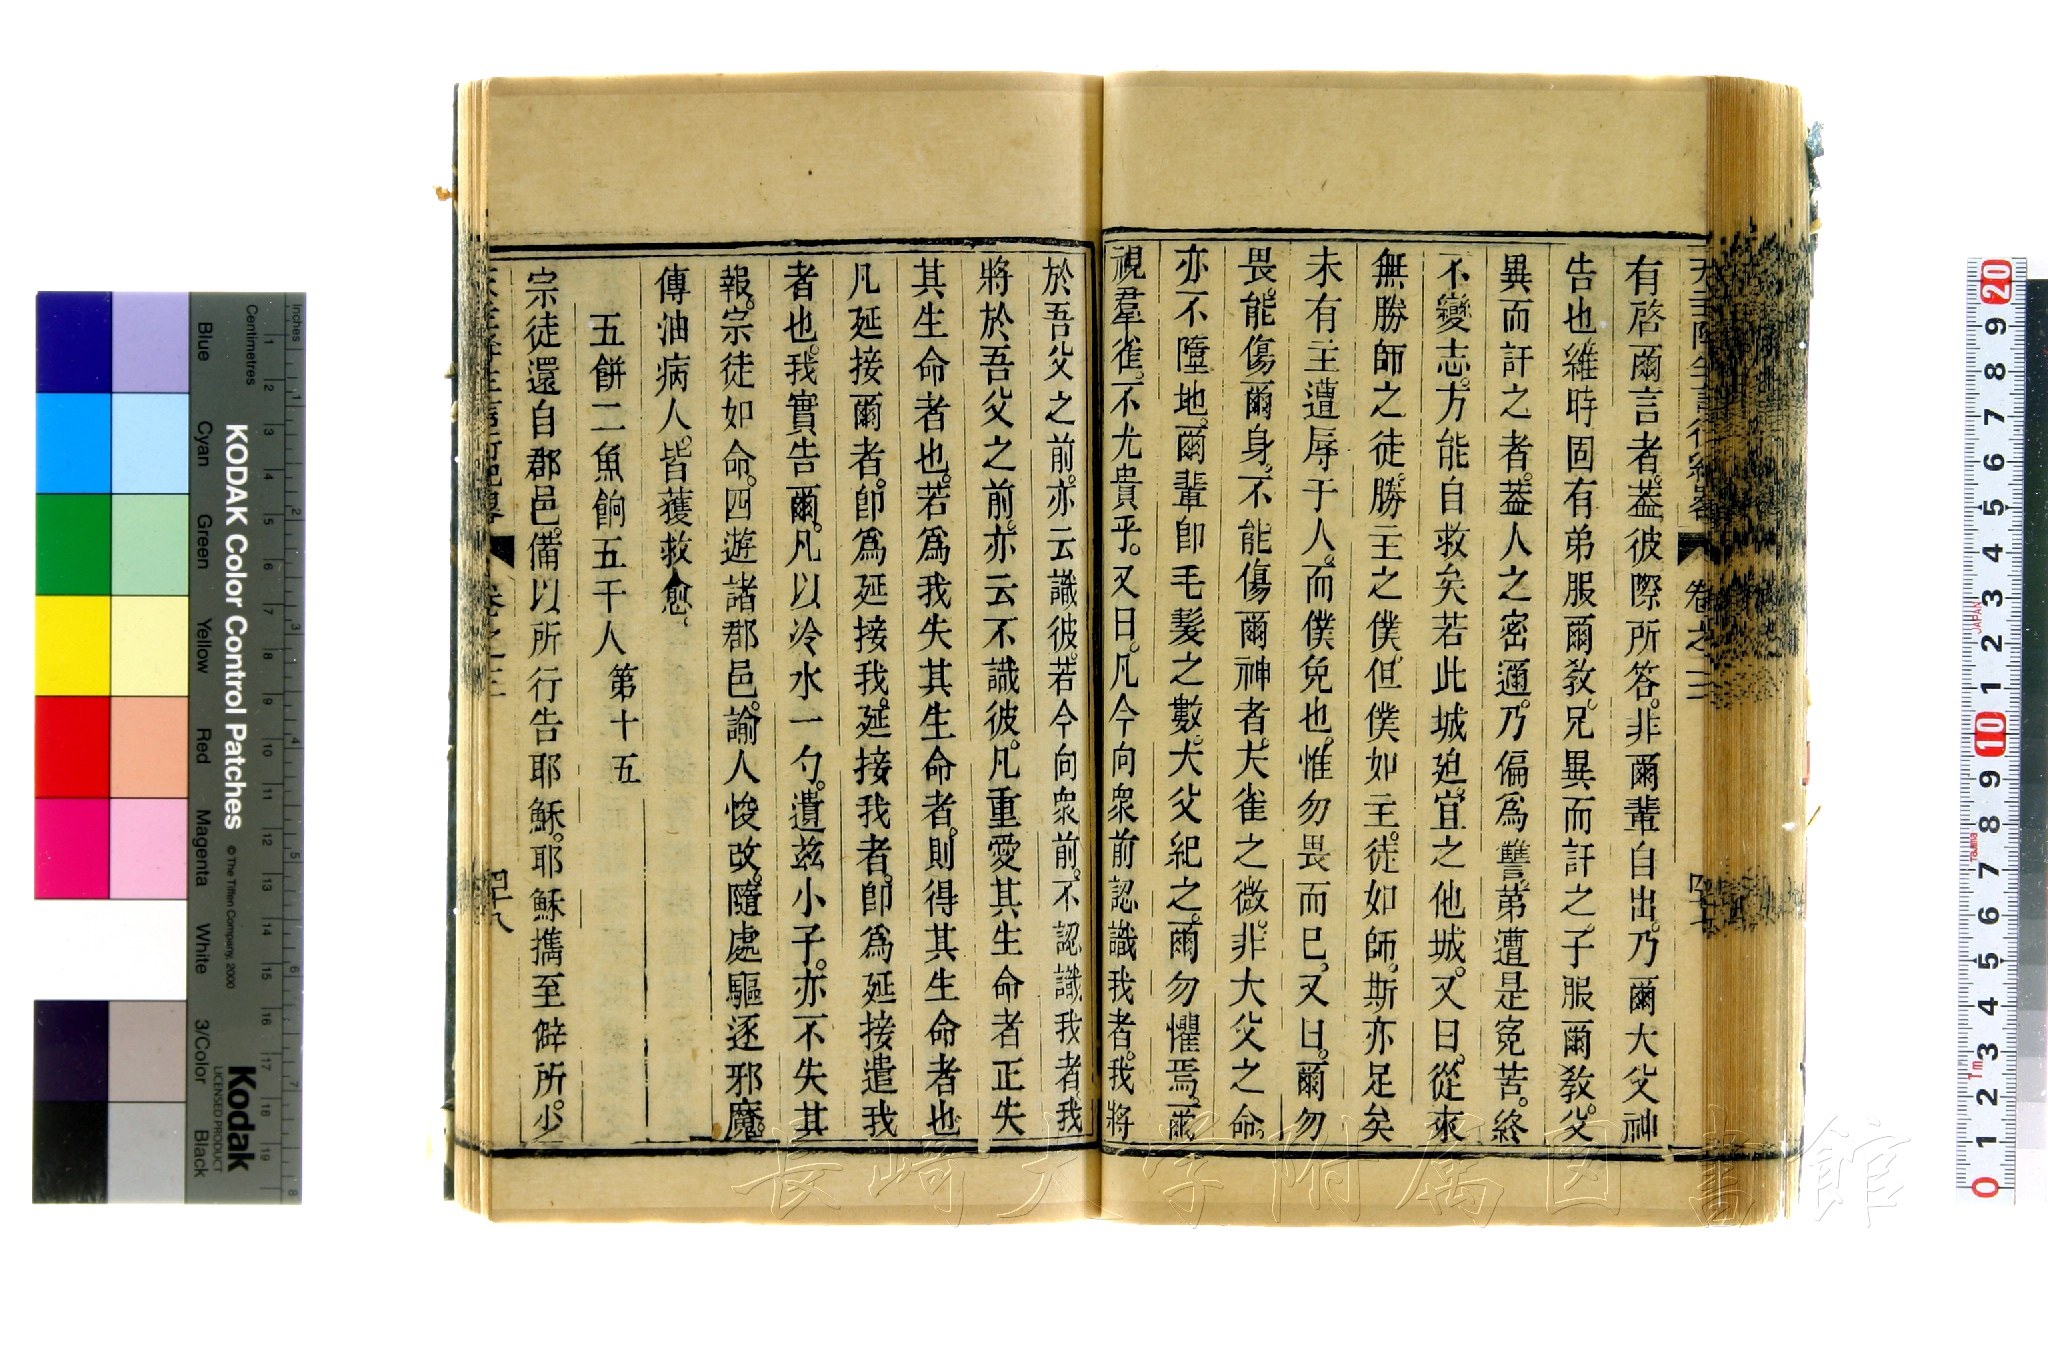 有啓爾言者。葢彼際所答。非爾輩自出。乃爾大父神
告也。維時固有弟服爾敎。兄異而訐之。子服爾敎。父
異而訐之者。葢人之密邇。乃偏爲讐。第遭是寃苦。終
不變志。方能自救矣若此城廹。宜之他城。又曰。從來
無勝師之徒。勝主之僕。但僕如主。徒如師。斯亦足矣
未有主遭辱于人。而僕免也。惟勿畏而巳。又曰。爾勿
畏。能傷爾身。不能傷爾神者。夫雀之微。非大父之命。
亦不墮地。爾輩卽毛髮之數。大父紀之。爾勿懼焉。爾
視羣雀。不尤貴乎。又曰。凡今向衆前認識我者。我將
於吾父之前。亦云識彼。若今向衆前。不認識我者。我
將於吾父之前。亦云不識彼。凡重愛其生命者正失
其生命者也。若爲我失其生命者。則得其生命者也
凡延接爾者。卽爲延接我。延接我者。卽爲延接遣我
者也。我實告爾。凡以冷水一勺。遺兹小子。亦不失其
報。宗徒如命。四遊諸郡邑。諭人悛改。隨處驅逐邪魔。
傳油病人。皆獲救愈。
五餅二魚餉五千人 第十五
宗徒還自郡邑。備以所行告耶穌。耶穌擕至僻所。少
卷之三
四十八
天主降生言行紀畧
卷之三
四十七
KODAK Color Control Patches
© The Tiffen Company, 2000
Kodak
LICENSED PRODUCT
Inches
Centimetres
Blue
Cyan
Green
Yellow
Red
Magenta
White
3/Color
Black
長崎大学附属図書館